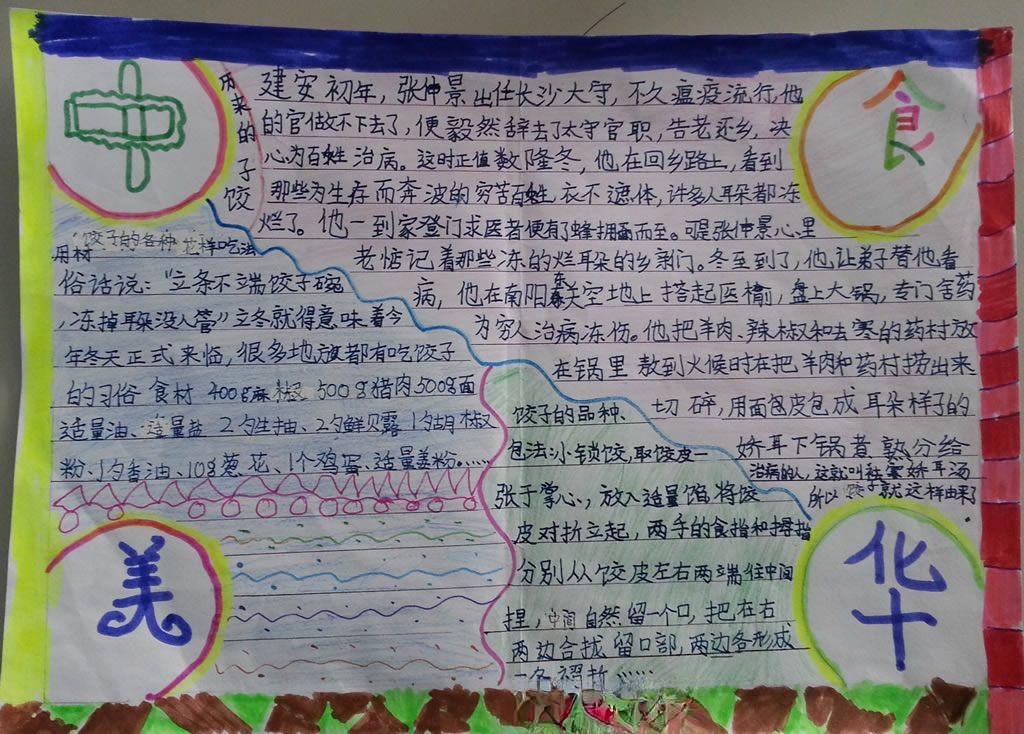 中
华
美
食
历来的子饺
建安初年，张仲景出任长沙大守，不久瘟疫流行，他
的官做不下去了，便毅然辞去了太守官职，告老还乡，决
心为百姓治病。这时正值数隆冬，他在回乡路上，看到
那些为生存而奔波的穷苦百姓衣不遮体，许多人耳朵都冻
烂了。他一到家登门求医者便有了蜂拥而至。可是张仲景心里
老惦记着那些冻的烂耳朵的乡亲门。冬至到了，他让弟子替他看
病，他在南阳东关空地上搭起医棚，盘上大锅，专门舍药
为穷人治病冻伤。他把羊肉、辣椒和去寒的药村放
在锅里熬到火候时在把羊肉和药村捞出来
切碎，用面包皮包成耳朵样子的
娇耳下锅煮熟分给
治病的人，这就叫祛寒娇耳汤
所以饺子就这样由来了.
饺子的各种花样吃法
用材
俗话说：“立条不端饺子碗
，冻掉耳朵没人管”立冬就得意味着今
年冬天正式来临，很多地放都有吃饺子
的习俗 食材 400g麻椒 500g猪肉500g面
适量油、适量盐 2勺生抽、2勺鲜贝露1勺胡椒
粉、1勺香油、10g葱花、1个鸡蛋、适量姜粉……
饺子的品种、
包法:小锁饺，取饺皮一
张于掌心，放入适量馅将饺
皮对折立起，两手的食指和拇指
分别从从饺皮左右两端往中间
捏，中间自然留一个口，把在右
两边合拢留口部，两边各形成
一个褶折……